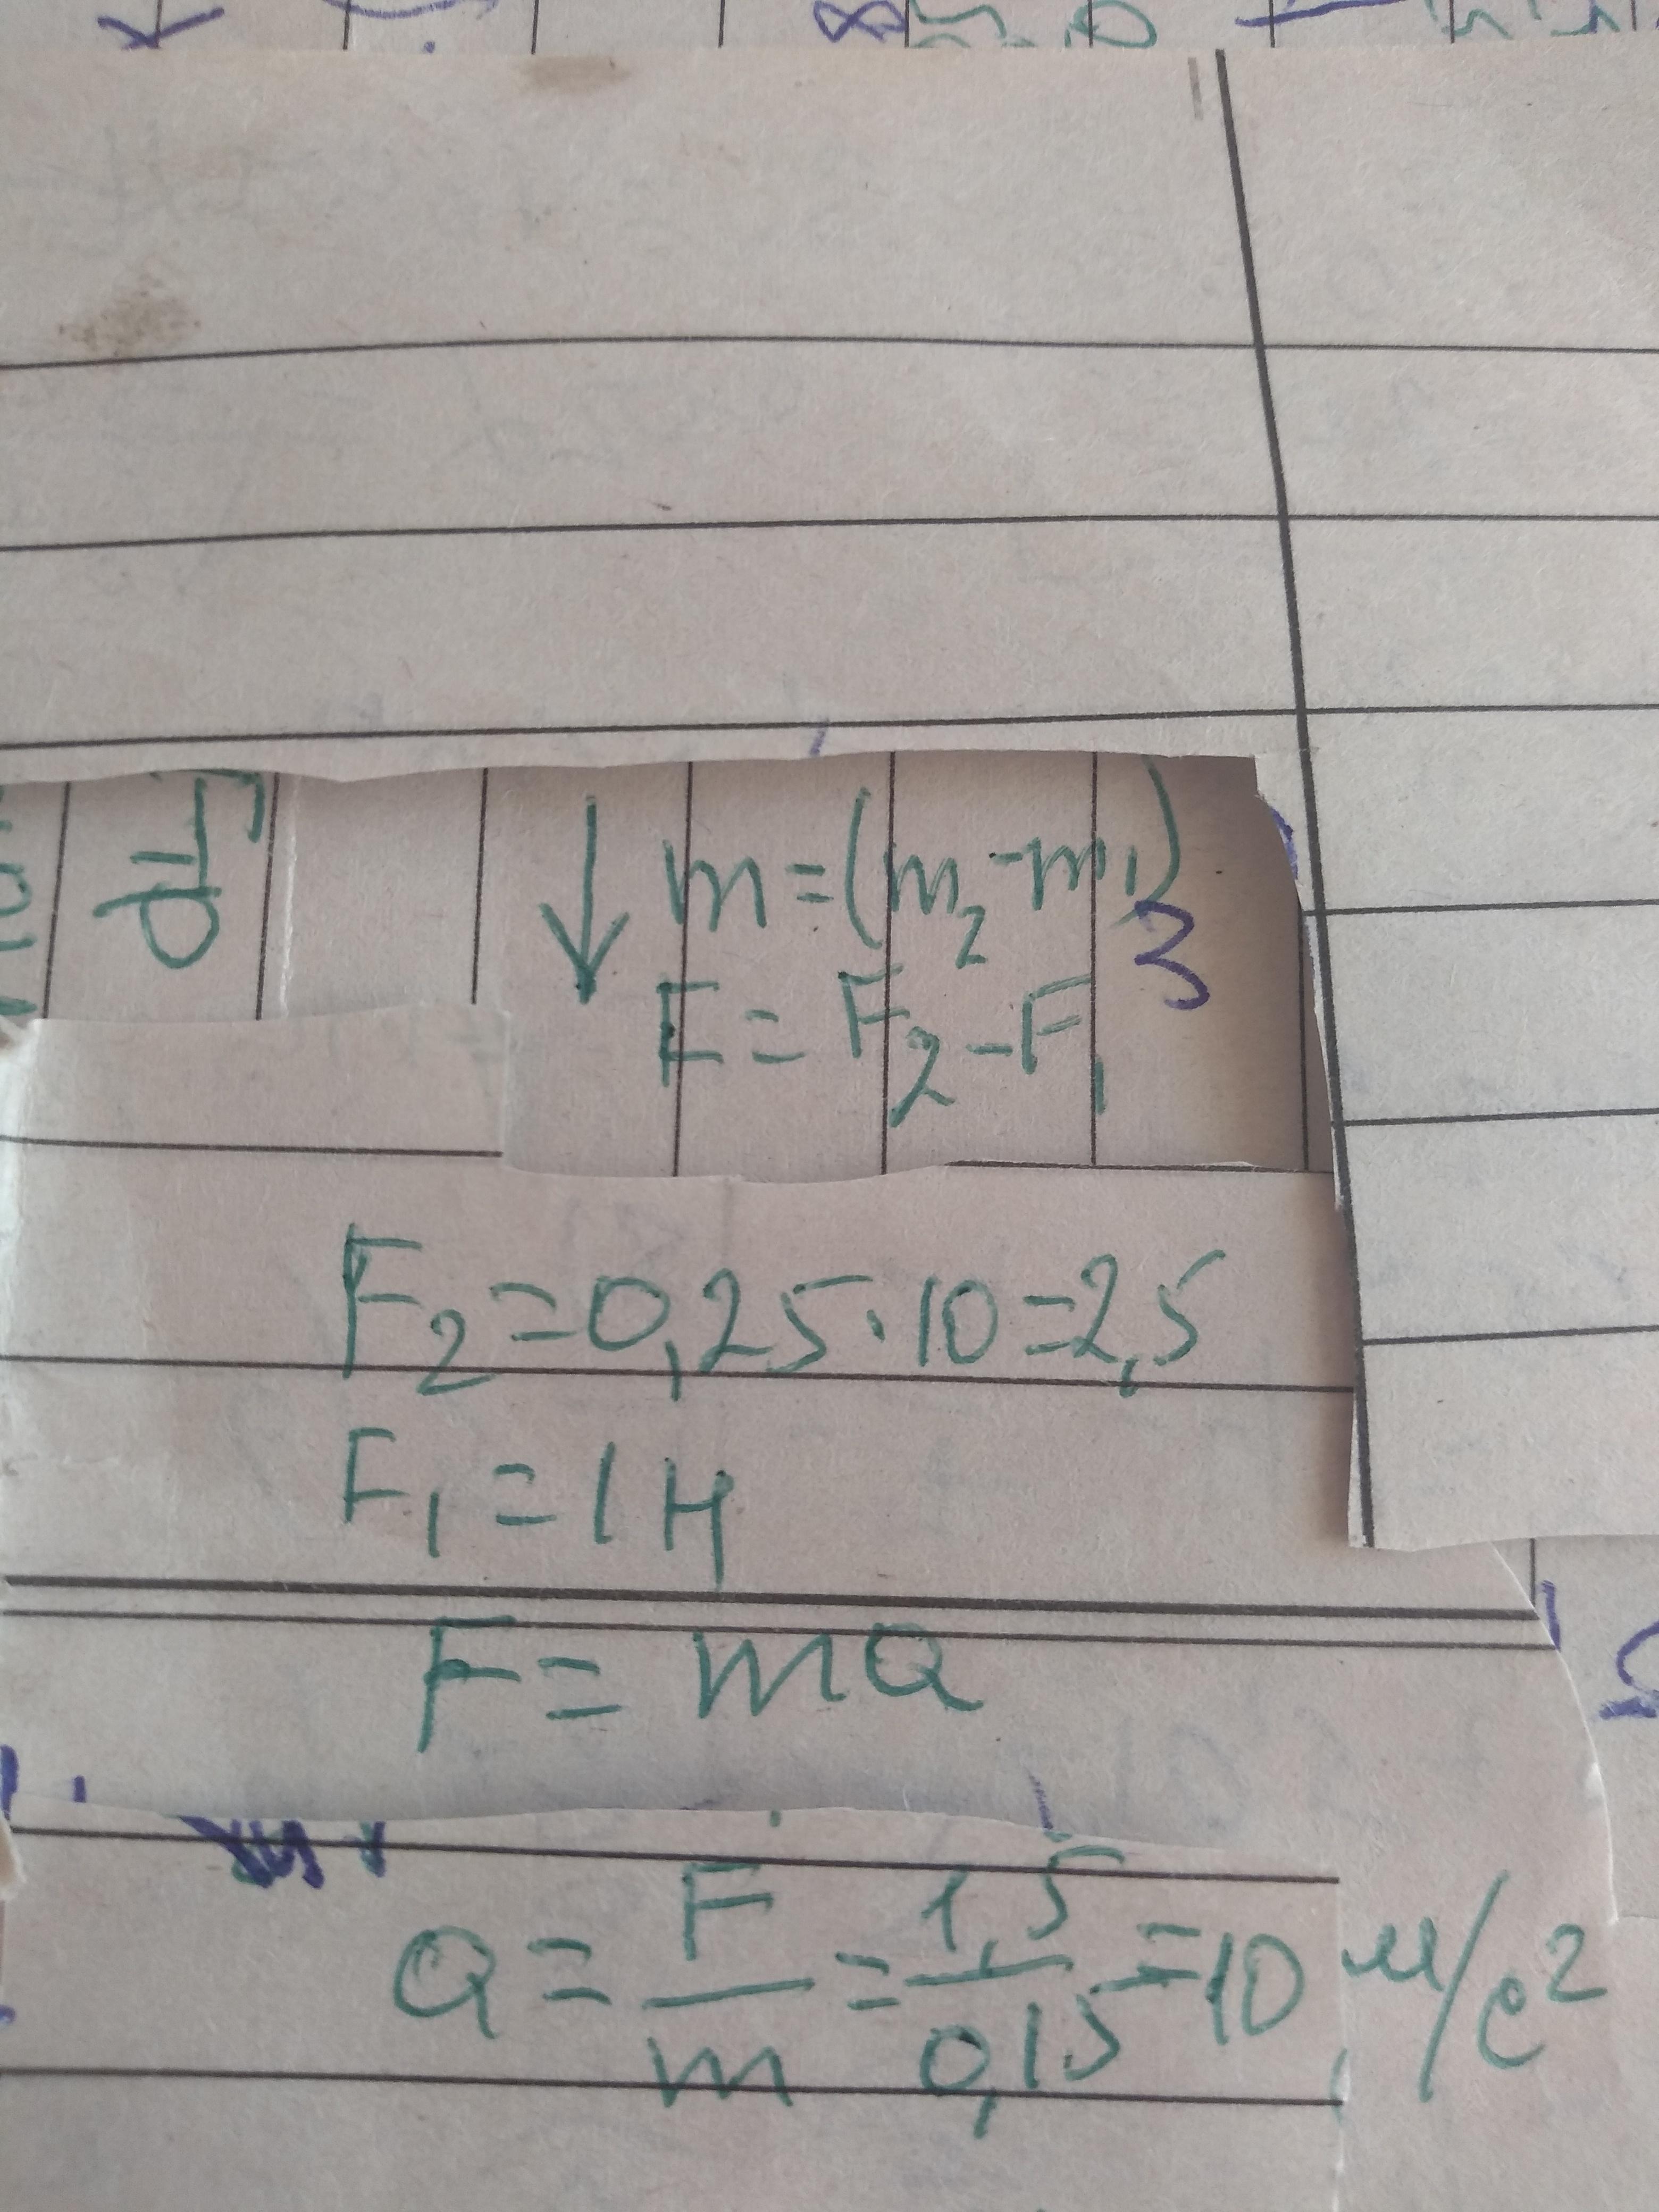 m = (m₂ - m₁)
3
F = F₂ - F₁
F₂ = 0,25 · 10 = 2,5
F₁ = 1 Н
F = ma
a = F/m = 1,5/0,15 = 10 м/с²